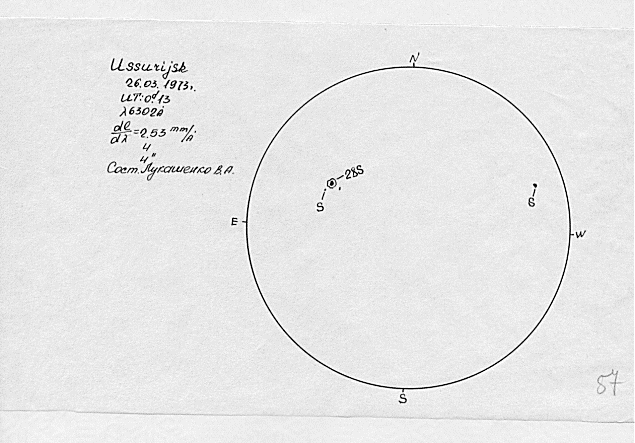 Ussurijsk
26.03.1973г.
UT: 0ʰ13
λ6302Å
dl/dλ = 2.53 mm/Å
4
4"
Сост. Лукашенко В.А.
N
28S
S
6
E
W
S
57